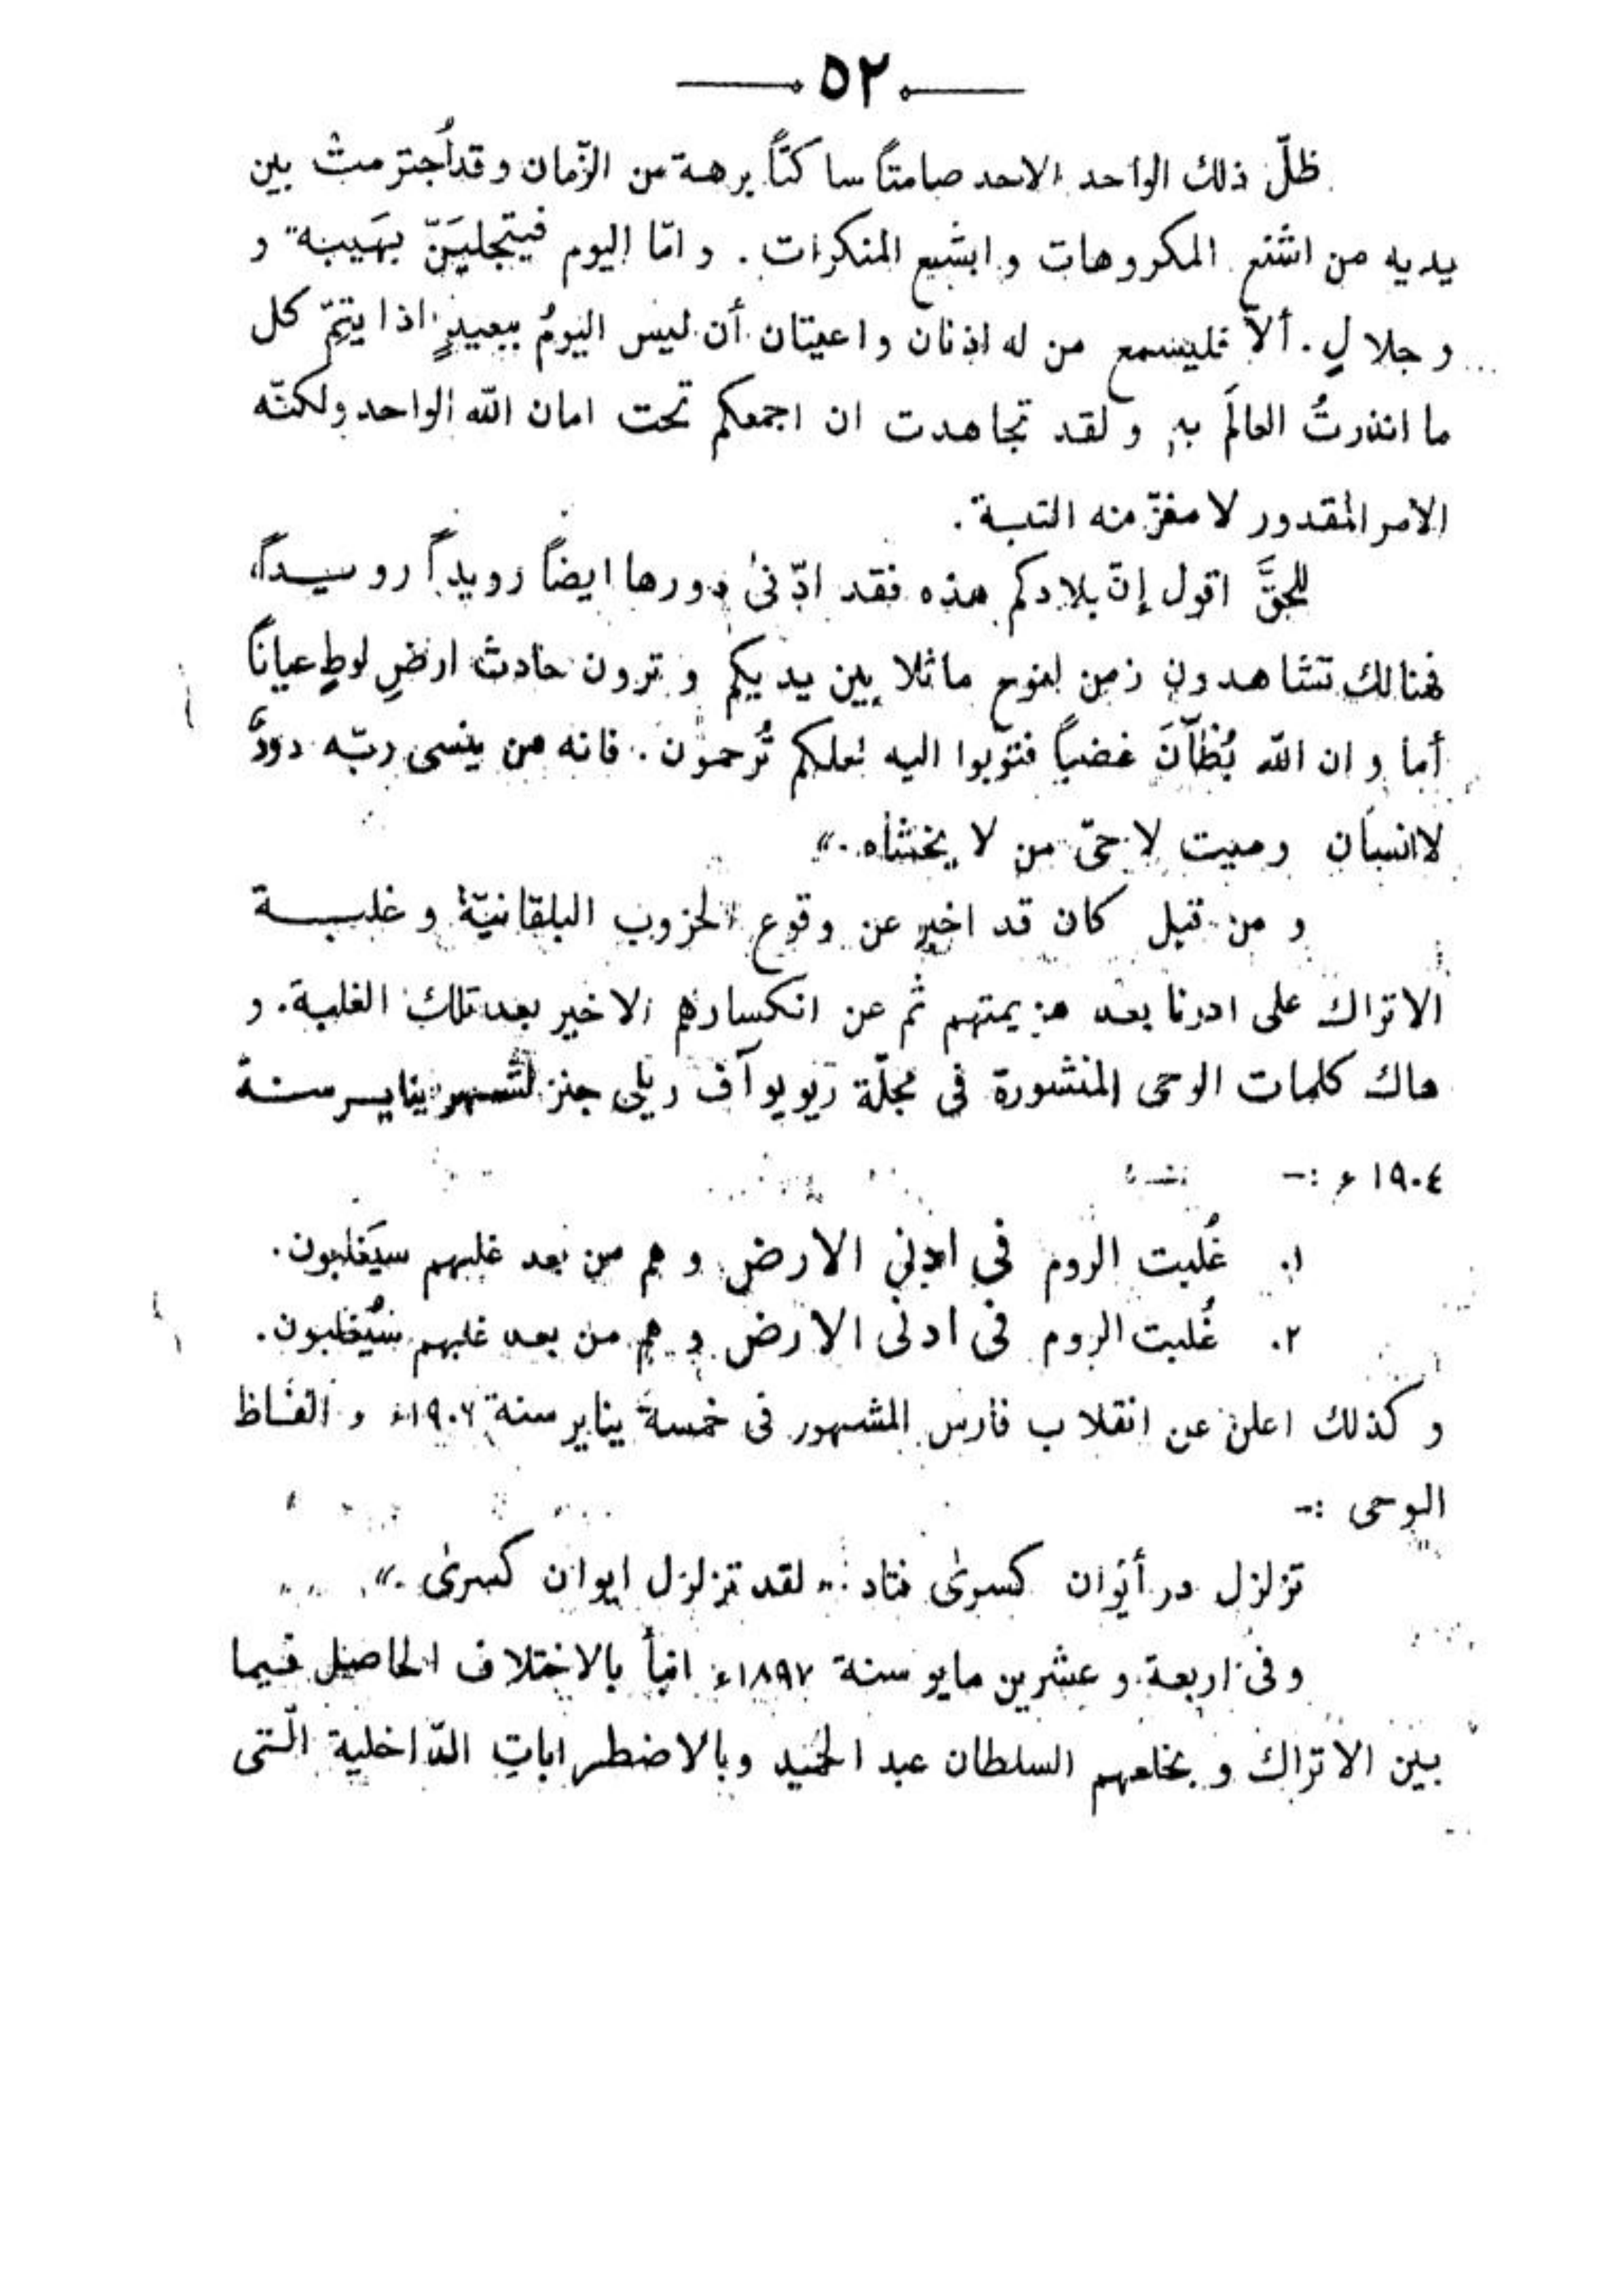 ٥٢
ظلّ ذلك الواحد الاحد صامتاً ساكتاً برهة من الزّمان وقد أُجترمت بين
يديه من اشنع المكروهات وابشع المنكرات. وامّا اليوم فيتجليَنّ بهَيبة و
وجلالٍ. ألا فليسمع من له اذنان واعيتان أن ليس اليومُ ببعيدٍ اذا يتمّ كل
ما انذرتُ العالَم به ولقد تجاهدت ان اجمعكم تحت امان الله الواحد ولكنّه
الامر المقدور لا مفرّ منه التبة.
للحقَّ اقول إنّ بلادكم هذه فقد ادّنىٰ دورها ايضاً رويداً رويداً،
فهنالك تشاهدون زمن لنوح ماثلا بين يديكم وترون حادث ارضِ لوطٍ عياناً
أما وان الله غضباً فتوبوا اليه لعلكم تُرحمون. فانه من ينسى ربّه دودٌ
لا انسان وميت لا حىّ من لا يخشاه.»
و من قبل كان قد اخبر عن وقوع الحروب البلقانيّة وغلبة
الاتراك على ادرنا بعد هزيمتهم ثم عن انكسارهم الاخير بعد تلك الغلبة. و
هاك كلمات الوحى المنشورة فى مجلّة ريويو آف ريلى جنز لشهر يناير سنة
١٩٠٤ء :-
١. غُلبت الروم في ادنى الارض وهم من بعد غلبهم سيَغلبون.
٢. غُلبت الروم فى ادنى الارض وهم من بعد غلبهم سيُغلبون.
وكذلك اعلن عن انقلاب فارس المشهور فى خمسة يناير سنة ١٩٠٦ء والفاظ
الوحى :-
تزلزل در أيوان كسرىٰ فتاد :" لقد تزلزل ايوان كسرىٰ."
وفى اربعة وعشرين مايو سنة ١٨٩٧ء انبأ بالاختلاف الحاصل فيما
بين الاتراك وبخلعهم السلطان عبد الحميد وبالاضطرابات الدّاخلية الّتى